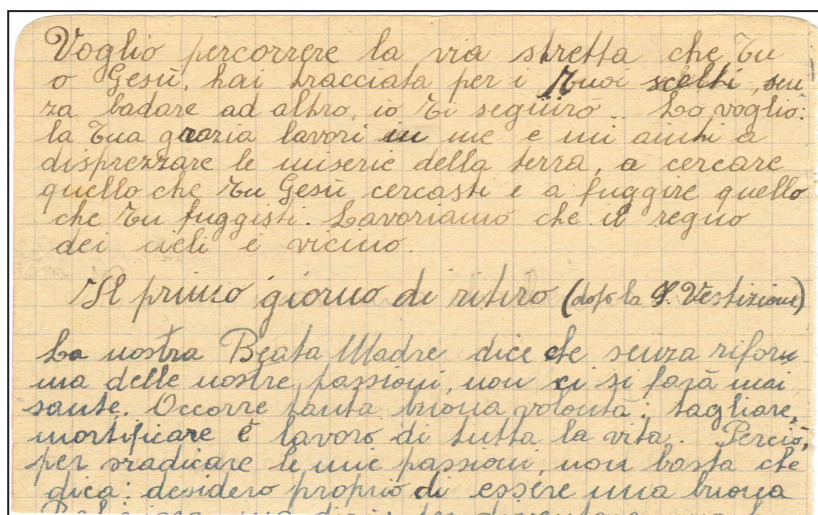 Voglio percorrere la via stretta che Tu
o Gesù, hai tracciata per i Tuoi scelti, sen
za badare ad altro, io Ti seguirò... Lo voglio:
la Tua grazia lavori in me e mi aiuti a
disprezzare le miserie della terra, a cercare
quello che Tu Gesù cercasti e a fuggire quello
che Tu fuggisti. Lavoriamo che il regno
dei cieli è vicino.
Il primo giorno di ritiro (dopo la S. Vestizione)
La nostra Beata Madre dice che senza rifor
ma delle nostre passioni, non ci si farà mai
sante. Occorre tanta buona volontà: tagliare,
mortificare è lavoro di tutta la vita. Perciò,
per sradicare le mie passioni, non basta che
dica: desidero proprio di essere una buona